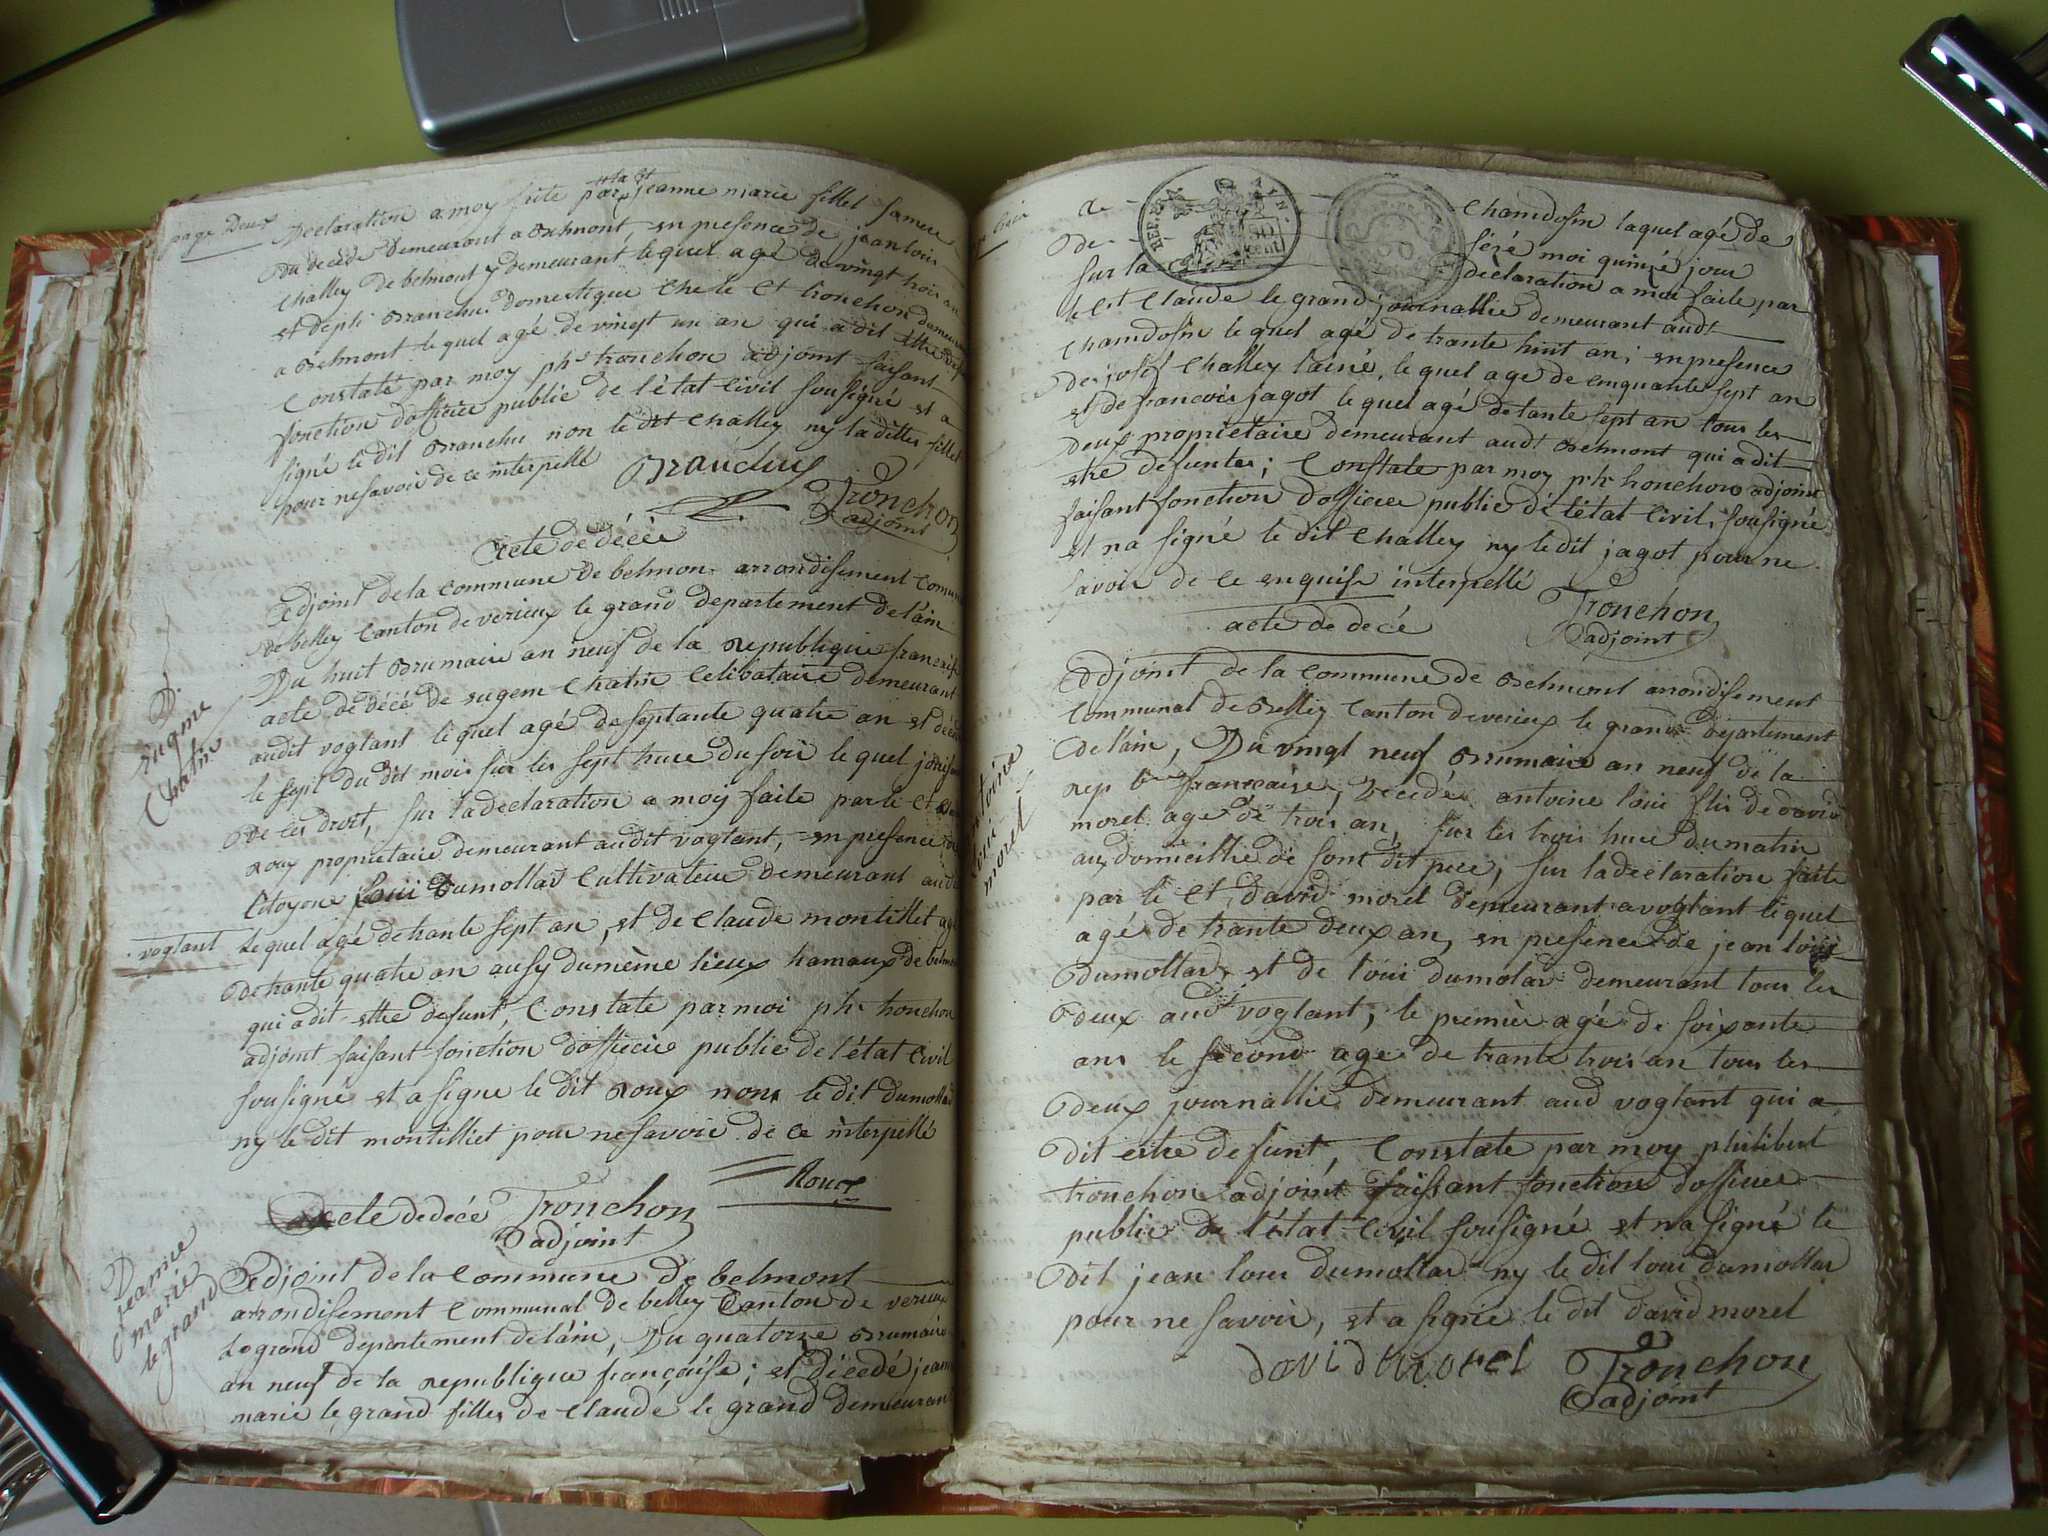 page Deux
Declaration a moy faite par la ct jeanne marie fillet sa mere
du decede demeurant a Belmont, en presence de jean loui
Challey de belmont y demeurant lequel agé de vingt trois an
et de phi Branchu domestique che le Ct tronchon demeurant
a Belmont le quel agé de vingt un an qui a dit
Constaté par moy phr tronchon adjoint faisant
fonction dofficier public de l'état Civil sousigné et a
signé le dit Branchu non le dit Challey ny la ditte fillet
pour ne savoir de ce interpellé
Branchu
Tronchon
adjoint
acte de décée
Adjoint de la commune de belmon arrondisement comun
de belley Canton de verieux le grand departement de l'ain
Du huit Brumaire an neuf de la Republique française
acte de décé de eugene Chatin Celibataire demeurant
audit vogtant le quel agé de septante quatre an et décédé
le sept du dit mois sur les sept hure du soir le quel
de ces droit, sur la declaration a moy faite par le Ct
roux proprietaire demeurant audit vogtant, en presence du
Citoyene loui Dumollar Cultivateur demeurant audit
vogtant lequel agé de trante sept an, et de Claude montillet agé
de trante quatre an ausy du même lieux hamaux de belmon
qui a dit estre defunt, Constate par moi phr tronchon
adjoint faisant fonction dofficier public de l'état Civil
sousigné et a signe le dit Roux non le dit dumollar
ny le dit montilliet pour ne savoir de ce interpellé
Roux
acte de décé Tronchon
adjoint
Adjoint de la Commune de belmont
arrondisement Communal de belley Canton de verieux
Le grand departement de l'ain, Du quatorze Brumaire
an neuf de la republique française; est décedé jeanne
marie le grand fille de Claude le grand demeurant
D.
eugene
Chatin
D
jeanne
marie
le grand
a Chamdosin laquel agé de
de moi quinze jour
sur la déclaration a moi faite par
le Ct Claude le grand journallié demeurant audt
Chamdosin le quel agé de trante huit an; en presence
de joset Challey lainé, le quel age de cinquante sept an
et de francois jagot le quel agé de tante sept an tous les
Deux proprietaire demeurant audt Belmont qui a dit
etre defuntes; Constate par moy phr tronchon adjoint
faisant fonction dofficier public de l'état Civil, sousigné
et na signé le dit Challey ny le dit jagot pour ne
savoir de ce enquise interpellé
Tronchon
adjoint
acte de décé
Adjoint de la Commune de Belmont arrondisement
Communal de Belley Canton de verieux le grand Département
de l'ain, Du vingt neuf Brumaire an neuf de la
rep française, Decedé antoine loui flis de david
morel agé de trois an, sur les trois hure du matin
aux domicillie de sont dit pere, sur la declaration faite
par le Ct, david morel demeurant a vogtant le quel
agé de trante deux an, en presence de jean loui
dumollar, et de loui dumolar demeurant tous les
deux audt vogtant, le premier agé de soixante
ans le second agé de trante trois an tous les
deux journallié demeurant aud vogtant qui a
Dit estre defunt, Constate par moy philibert
tronchon adjoint faissant fonction dofficier
public de l'état Civil sousigné et na signé le
Dit jean loui dumollar ny le dit loui dumollar
pour ne savoir, et a signe le dit david morel
david morel Tronchon
adjoint
antoine
loui
morel